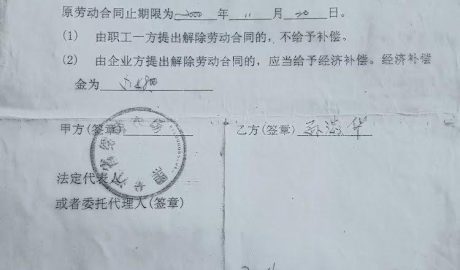 原劳动合同止期限为2000年11月20日。
(1) 由职工一方提出解除劳动合同的，不给予补偿。
(2) 由企业方提出解除劳动合同的，应当给予经济补偿。经济补偿
金为
甲方(签章)
乙方(签章)
法定代表人
或者委托代理人(签章)